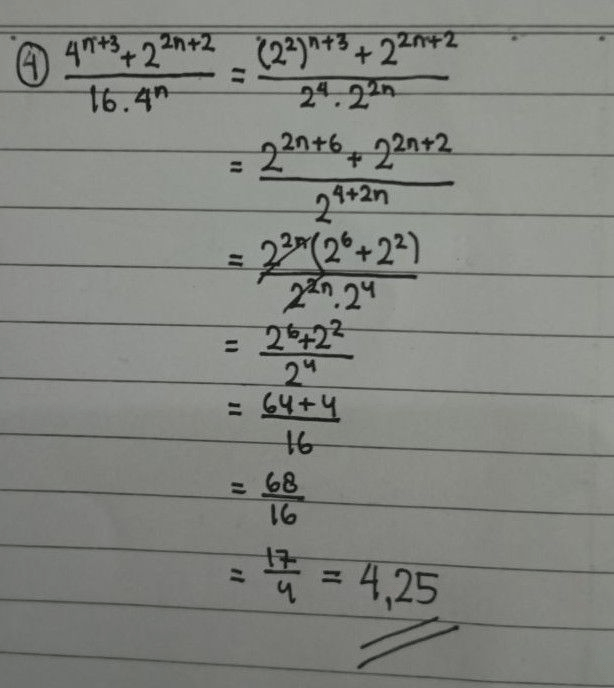 ④ \frac{4^{n+3} + 2^{2n+2}}{16 . 4^n} = \frac{(2^2)^{n+3} + 2^{2n+2}}{2^4 . 2^{2n}}
= \frac{2^{2n+6} + 2^{2n+2}}{2^{4+2n}}
= \frac{2^{2n}(2^6 + 2^2)}{2^{2n} . 2^4}
= \frac{2^6 + 2^2}{2^4}
= \frac{64 + 4}{16}
= \frac{68}{16}
= \frac{17}{4} = 4,25